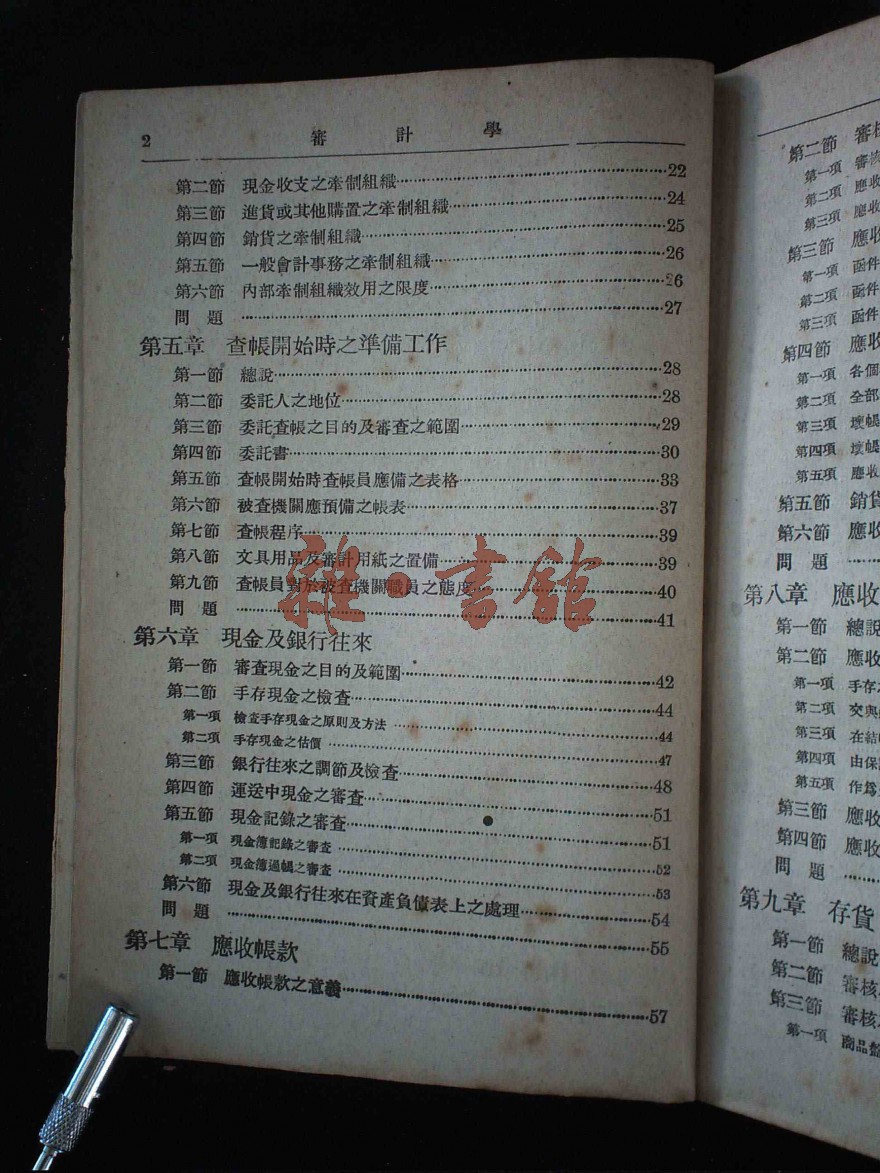 2 審計學
第二節 現金收支之牽制組織 22
第三節 進貨或其他購置之牽制組織 24
第四節 銷貨之牽制組織 25
第五節 一般會計事務之牽制組織 26
第六節 內部牽制組織效用之限度 26
問題 27
第五章 查帳開始時之準備工作
第一節 總說 28
第二節 委託人之地位 28
第三節 委託查帳之目的及審查之範圍 29
第四節 委託書 30
第五節 查帳開始時查帳員應備之表格 33
第六節 被查機關應預備之帳表 37
第七節 查帳程序 39
第八節 文具用品及審計用紙之置備 39
第九節 查帳員對於被查機關職員之態度 40
問題 41
第六章 現金及銀行往來
第一節 審查現金之目的及範圍 42
第二節 手存現金之檢查 44
第一項 檢查手存現金之原則及方法 44
第二項 手存現金之估價 47
第三節 銀行往來之調節及檢查 48
第四節 運送中現金之審查 51
第五節 現金記錄之審查 51
第一項 現金簿記錄之審查 52
第二項 現金簿過帳之審查 53
第六節 現金及銀行往來在資產負債表上之處理 54
問題 55
第七章 應收帳款
第一節 應收帳款之意義 57
雜·書館
第二節 審核
第一項 審核
第二項 應收
第三項 應收
第三節 應收
第一項 函件
第二項 函件
第三項 函件
第四節 應收
第一項 各個
第二項 全部
第三項 壞帳
第四項 壞帳
第五項 應收
第五節 銷貨
第六節 應收
問題
第八章 應收
第一節 總說
第二節 應收
第一項 手存
第二項 交與
第三項 在結
第四項 由保
第五項 作為
第三節 應收
第四節 應收
問題
第九章 存貨
第一節 總說
第二節 審核
第三節 審核
第一項 商品盤